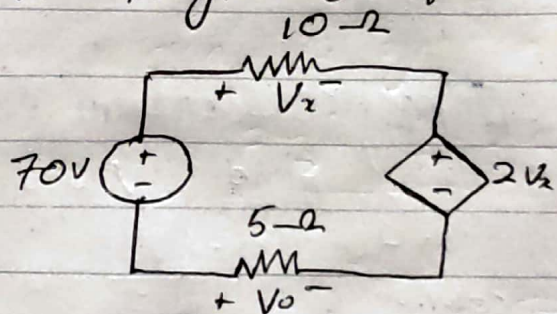 10 Ω
+ Vx -
70V
+
-
+
-
2Vx
5 Ω
+ Vo -